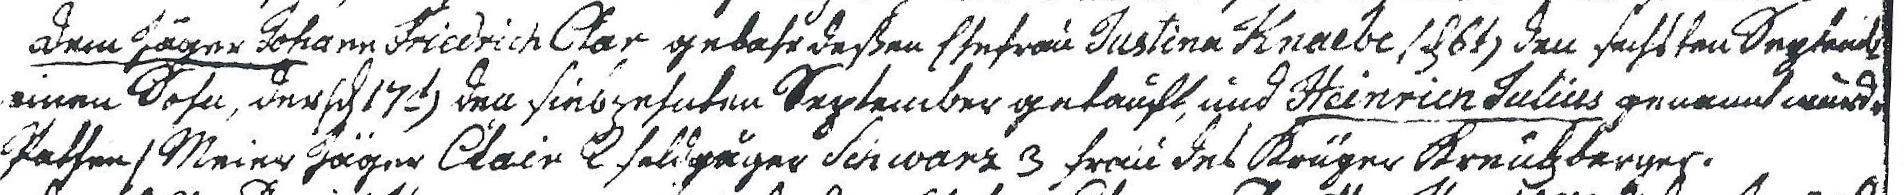 Dem Jäger Johann Friedrich Clar gebahr deßen Ehefrau Justina Knaebe, (d 6t) den sechsten Septemb
einen Sohn, der (d 17t) den siebzehnten September getauft, und Heinrich Julius genannt wurde
Pathen 1 Meier Jäger Clair 2 Feldjäger Schwarz 3 Frau des Krüger Kreutzberger.